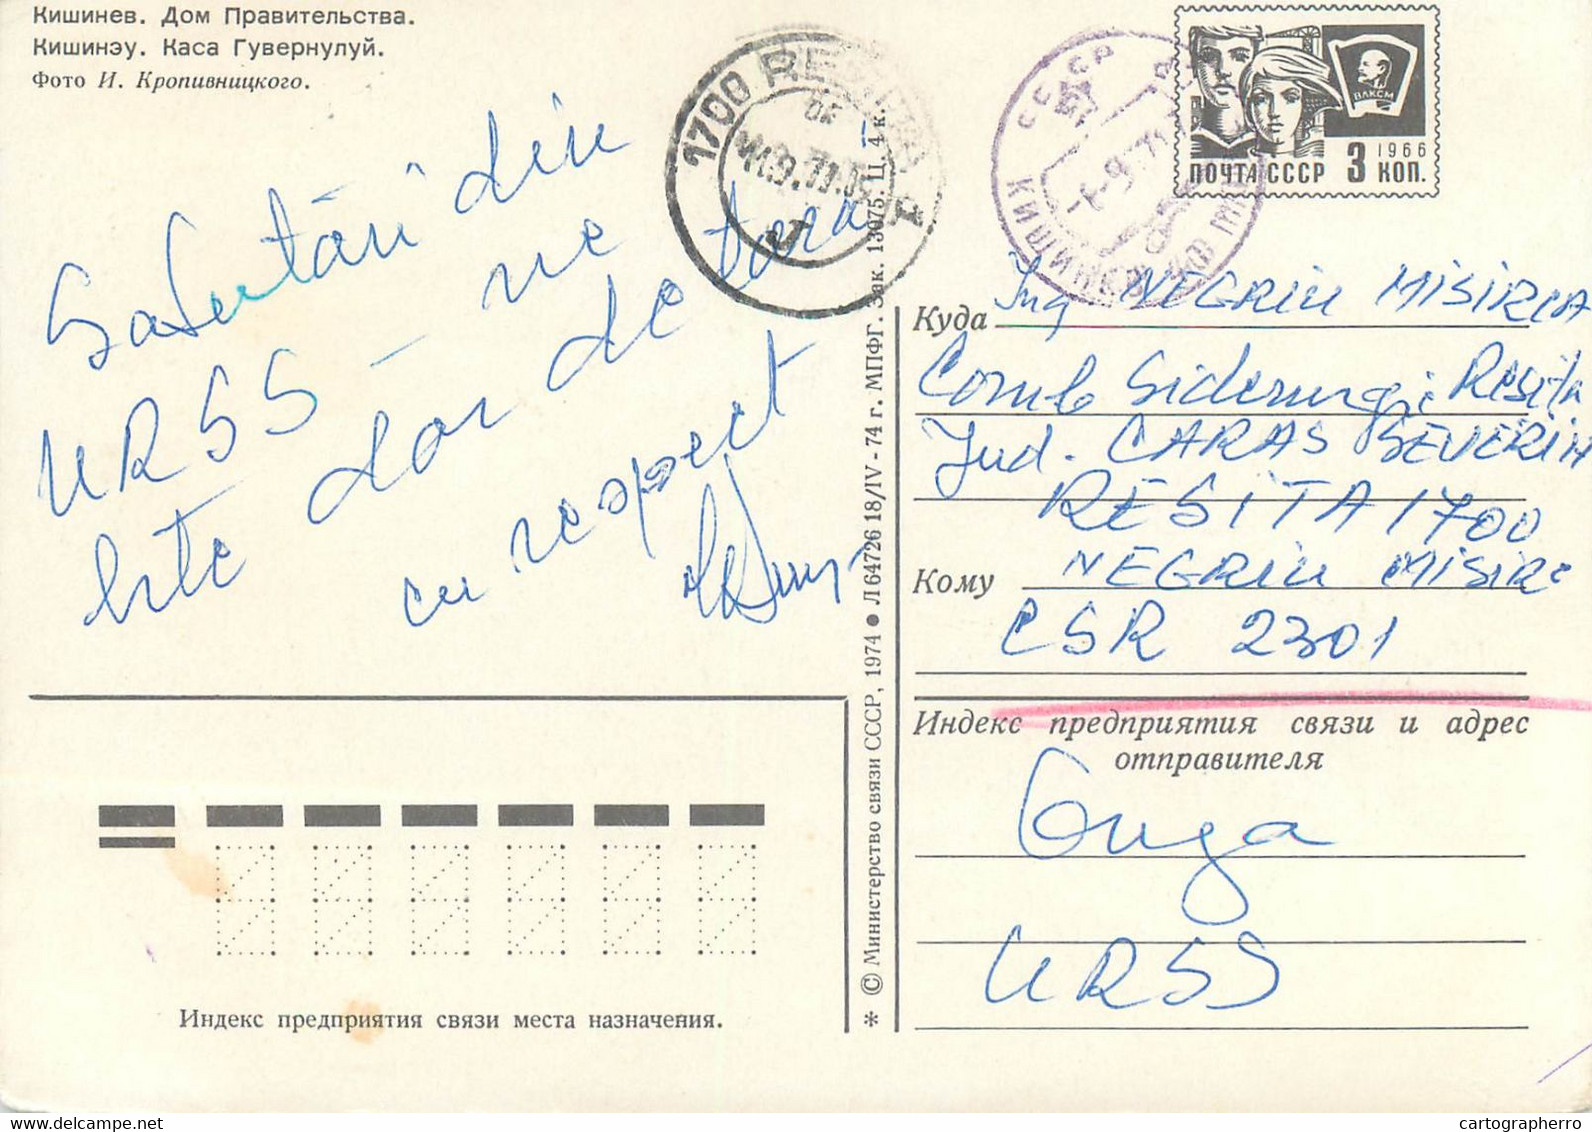 Кишинев. Дом Правительства.
Кишинэу. Каса Гувернулуй.
Фото И. Кропивницкого.
Salutări din
URSS – ne
este dor de țară
cu respect
1700 REȘIȚA 1
СССР
КИШИНЕВ
ВЛКСМ
1966
ПОЧТА СССР 3 КОП.
Куда Ing NEGRIU MISIRCA
Comb Siderurgic Resita
Jud. CARAS SEVERIN
RESITA 1700
Кому NEGRIU MISIRC
CSR 2301
Индекс предприятия связи и адрес
отправителя
URSS
Индекс предприятия связи места назначения.
* © Министерство связи СССР, 1974 ● Л 64726 18/IV - 74 г. МПФГ. Зак. 13075. Ц. 4 к.
cartographerro